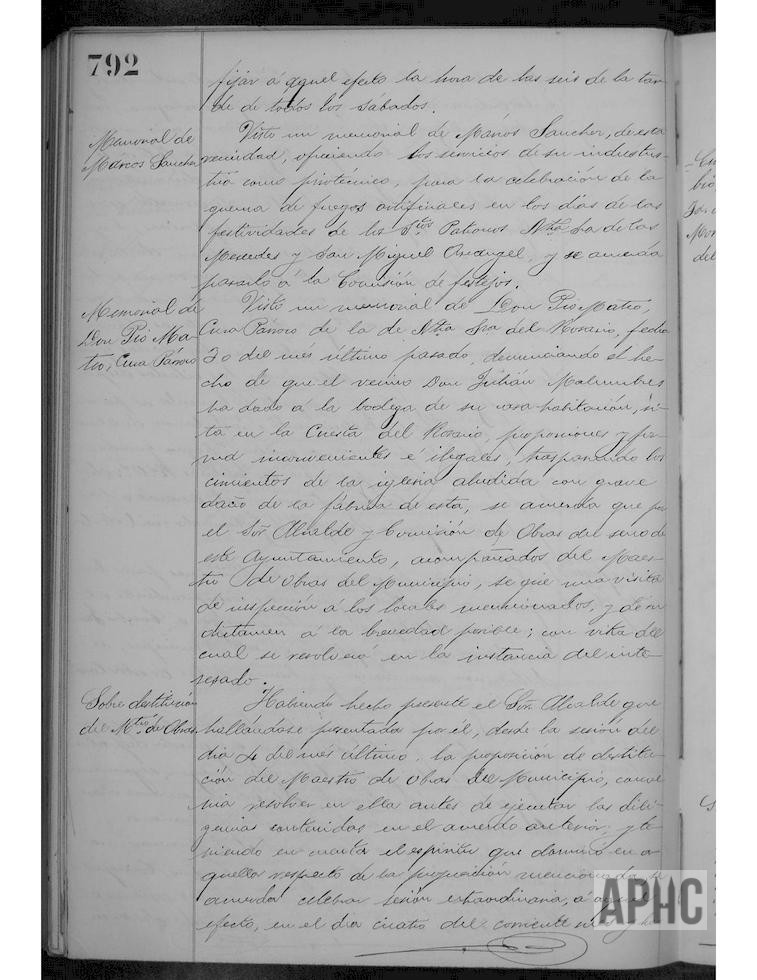 792
fijar á aquel efecto la hora de las seis de la tar-
de de todos los sábados.
Memorial de
Marcos Sanchez
Visto un memorial de Marcos Sanchez, de esta
vecindad, ofreciendo los servicios de su indus-
tria como pirotécnico, para la celebración de la
quema de fuegos artificiales en los dias de las
festividades de los Stos Patronos Ntra Sra de las
Mercedes y San Miguel Arcangel, y se acuerda
pasarlo á la Comisión de festejos.
Memorial de
Don Pio Ma-
teo, Cura Párroco
Visto un memorial de Don Pio Mateo,
Cura Párroco de la de Ntra Sra del Rosario, fecha
30 del més último pasado, denunciando el he-
cho de que el vecino Don Julián Malumbres
ha dado á la bodega de su casa-habitación, si-
ta en la Cuesta del Rosario, proporciones y for-
ma inconvenientes é ilegales, traspasando los
cimientos de la iglesia aludida con grave
daño de la fábrica de esta, se acuerda que por
el Sor Alcalde y Comisión de Obras del seno de
este Ayuntamiento, acompañados del Maes-
tro de Obras del Municipio, se gire una visita
de inspección á los locales mencionados, y den
dictamen á la brevedad posible; con vista del
cual se resolverá en la instancia del inte-
resado.
Sobre destitución
del Mtro de Obras
Habiendo hecho presente el Sor Alcalde que
hallándose presentada por él, desde la sesión del
dia 4 del més último, la proposición de destitu-
ción del Maestro de Obras del Municipio, conve-
nia resolver en ella antes de ejecutar las dili-
gencias contenidas en el acuerdo anterior; y te-
niendo en cuenta el espíritu que dominó en a-
quella respecto de la proposición mencionada, se
acuerda celebrar sesión extraordinaria, á aquel
efecto, en el dia cuatro del corriente mes y
APHC